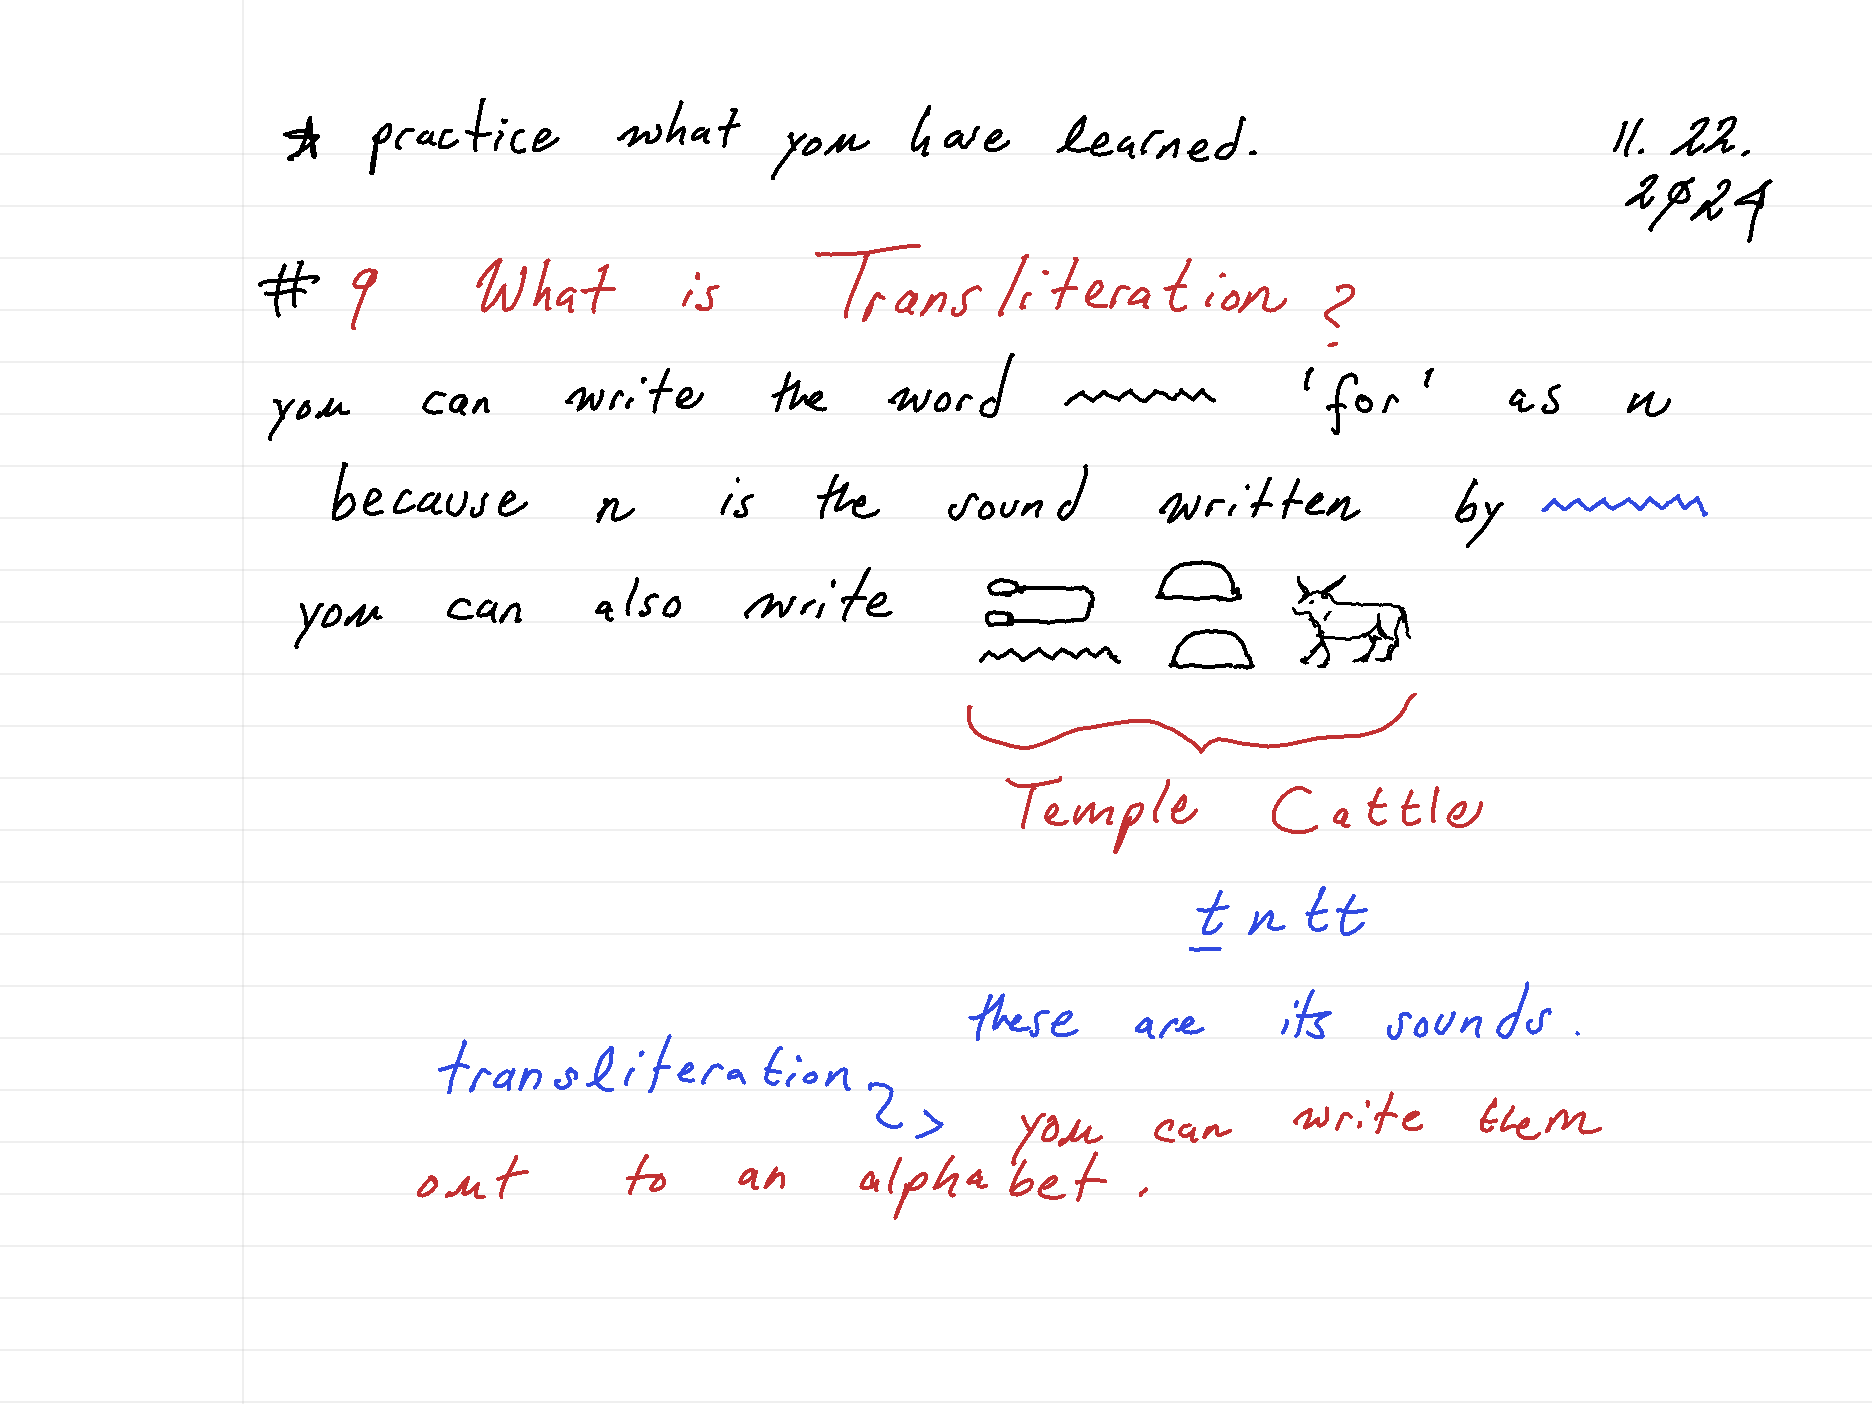 ★ practice what you have learned.
11. 22.
2024
# 9 What is Transliteration?
you can write the word 𓈖 'for' as n
because n is the sound written by 𓈖
you can also write 𓍿𓈖𓏏𓏏𓃒
Temple Cattle
ṯntt
these are its sounds.
transliteration → you can write them
out to an alphabet.